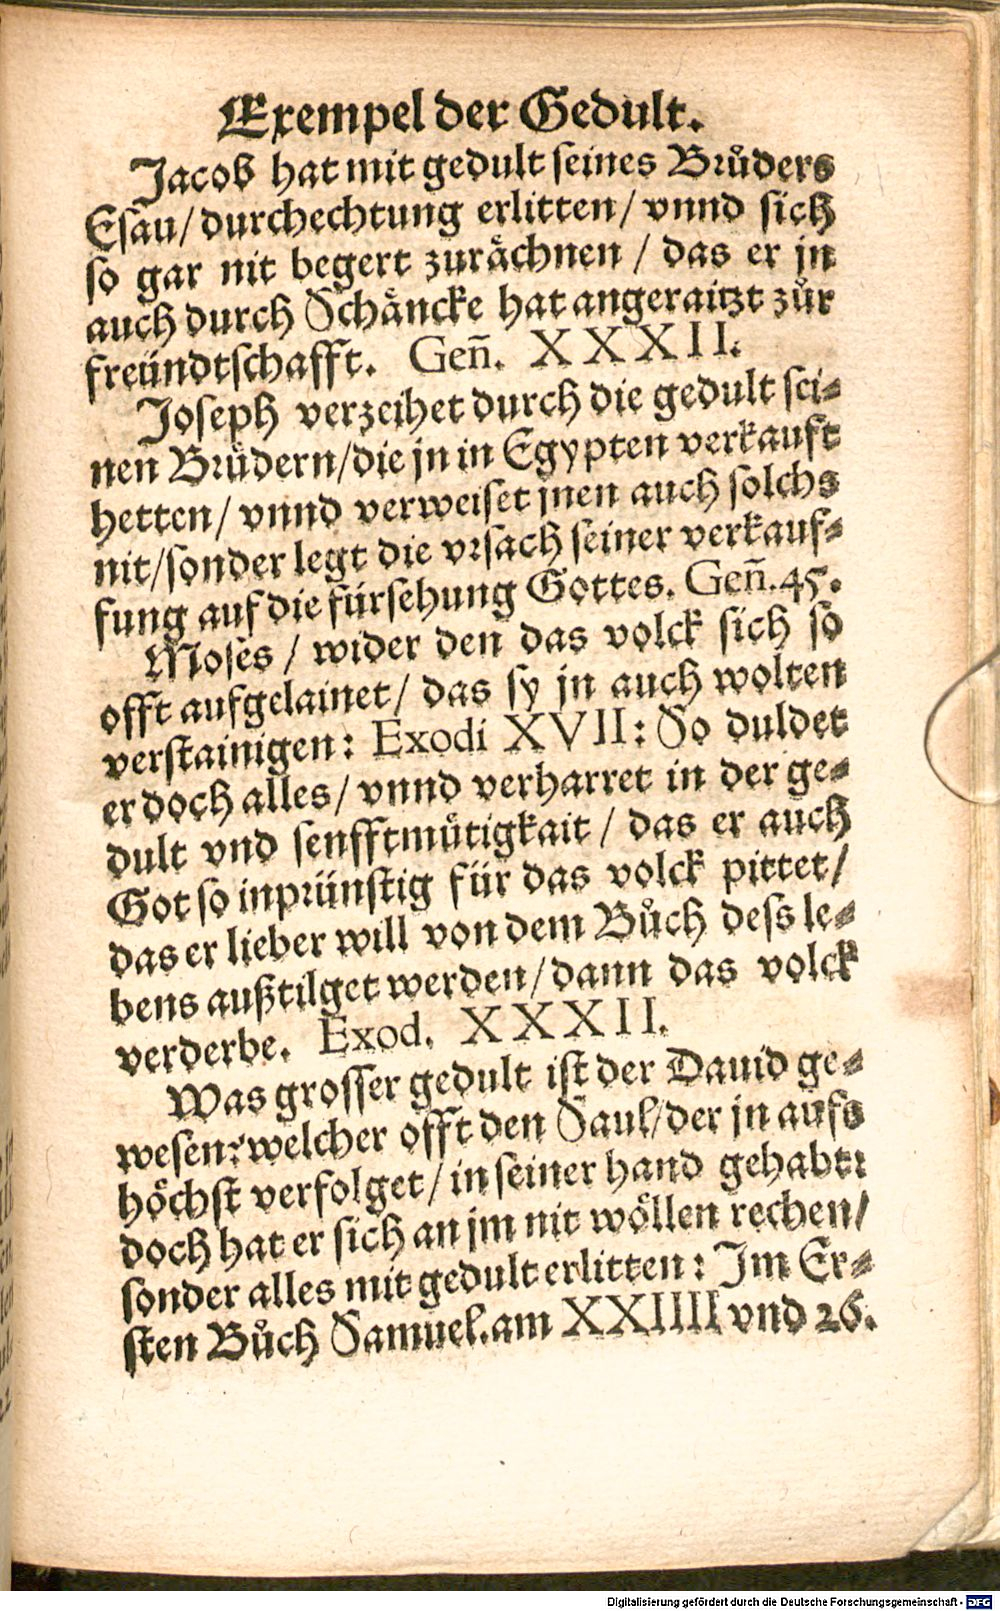 Exempel der Gedult.
Jacob hat mit gedult seines Brůders
Esau/ durchechtung erlitten/ vnnd sich
so gar nit begert zurächnen / das er jn
auch durch Schäncke hat angeraitzt zůr
freündtschafft. Geñ. XXXII.
Joseph verzeihet durch die gedult sei⸗
nen Brüdern/die jn in Egypten verkauft
hetten/ vnnd verweiset jnen auch solchs
nit/sonder legt die vrsach seiner verkauf⸗
fung auf die fürsehung Gottes. Geñ.45.
Moses / wider den das volck sich so
offt aufgelainet/ das sy jn auch wolten
verstainigen: Exodi XVII: So duldet
er doch alles/ vnnd verharret in der ge⸗
dult vnd senfftmütigkait / das er auch
Got so inprünstig für das volck pittet/
das er lieber will von dem Bůch dess le⸗
bens außtilget werden/dann das volck
verderbe. Exod. XXXII.
Was grosser gedult ist der Dauid ge⸗
wesen? welcher offt den Saul/der jn aufs
höchst verfolget/ in seiner hand gehabt:
doch hat er sich an jm nit wöllen rechen/
sonder alles mit gedult erlitten: Im Er⸗
sten Bůch Samuel.am XXIIII vnd 26.
Digitalisierung gefördert durch die Deutsche Forschungsgemeinschaft - DFG